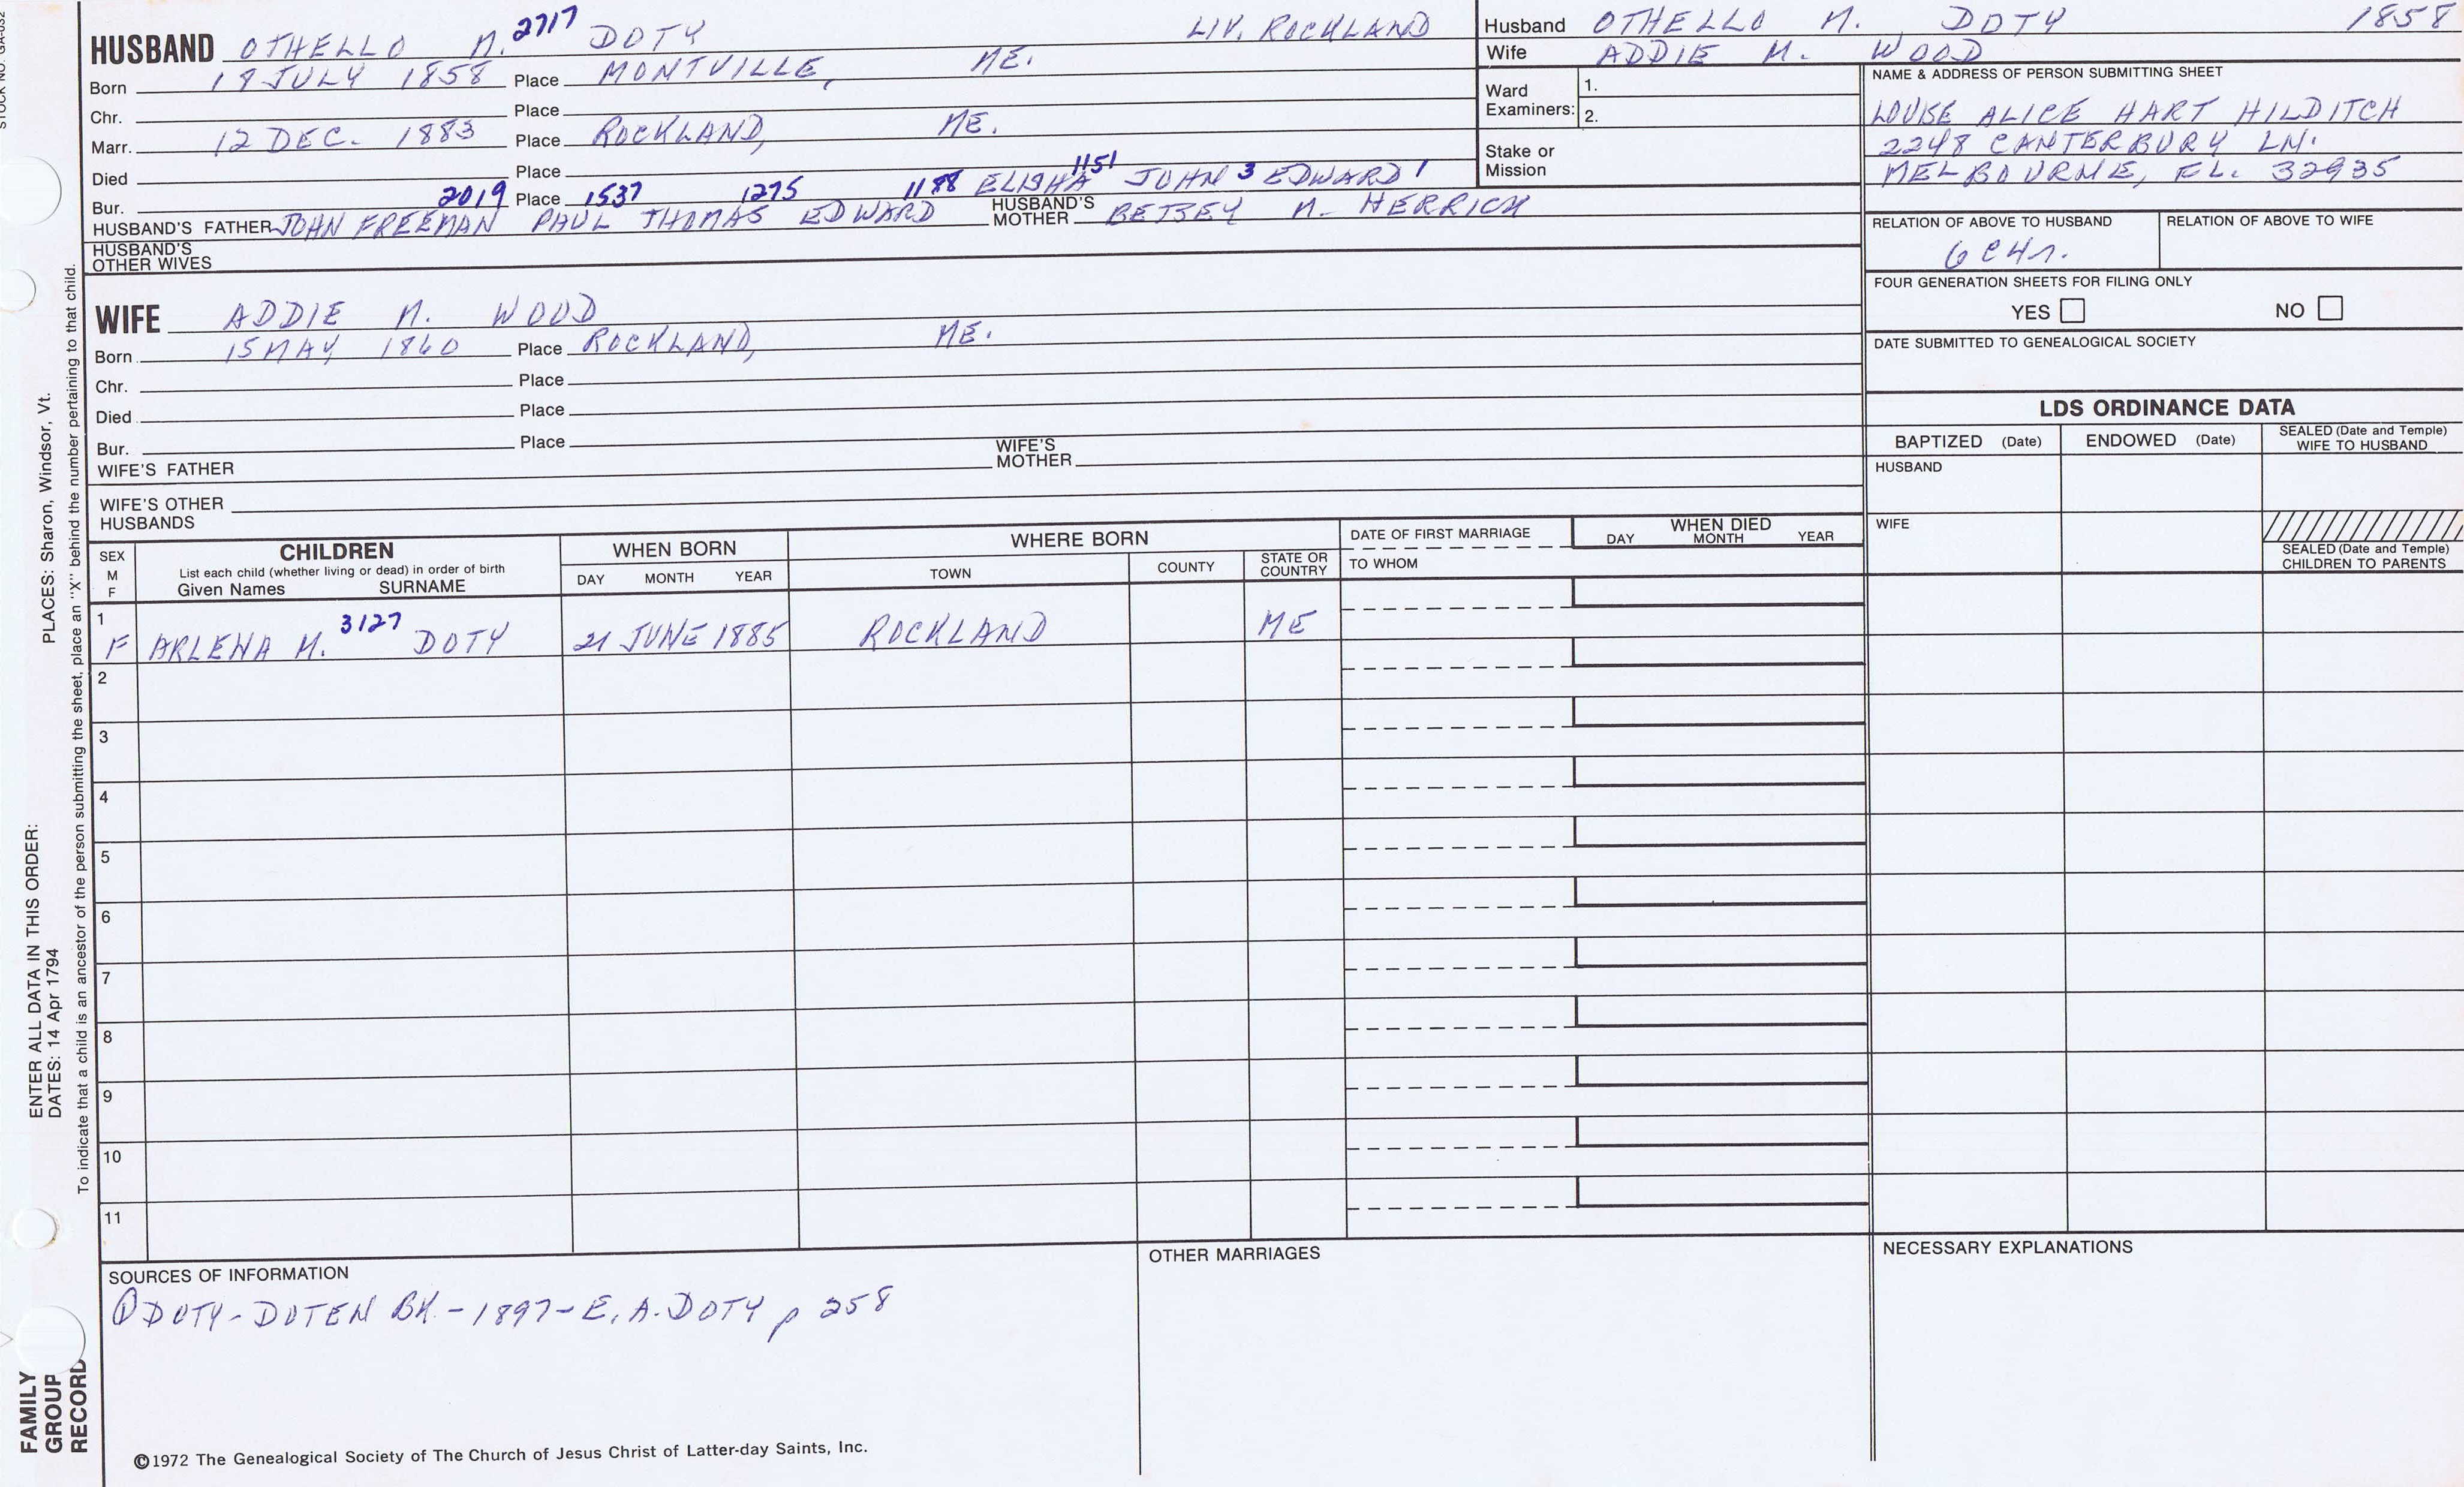 STOCK NO. GA-032
HUSBAND OTHELLO M. 2717 DOTY LIV. ROCKLAND
Born 19 JULY 1858 Place MONTVILLE, ME.
Chr. Place
Marr. 12 DEC. 1883 Place ROCKLAND, ME.
Died Place
Bur. Place
2019 1537 1275 1188 ELISHA 1151 JOHN 3 EDWARD 1
HUSBAND'S FATHER JOHN FREEMAN PAUL THOMAS EDWARD HUSBAND'S MOTHER BETSEY M. HERRICK
HUSBAND'S OTHER WIVES
WIFE ADDIE M. WOOD
Born 15 MAY 1860 Place ROCKLAND, ME.
Chr. Place
Died Place
Bur. Place
WIFE'S FATHER WIFE'S MOTHER
WIFE'S OTHER HUSBANDS
Husband OTHELLO M. DOTY 1858
Wife ADDIE M. WOOD
Ward Examiners: 1.
2.
Stake or Mission
NAME & ADDRESS OF PERSON SUBMITTING SHEET
LOUISE ALICE HART HILDITCH
2248 CANTERBURY LN.
MELBOURNE, FL. 32935
RELATION OF ABOVE TO HUSBAND RELATION OF ABOVE TO WIFE
6C4r.
FOUR GENERATION SHEETS FOR FILING ONLY
YES NO
DATE SUBMITTED TO GENEALOGICAL SOCIETY
LDS ORDINANCE DATA
BAPTIZED (Date) ENDOWED (Date) SEALED (Date and Temple) WIFE TO HUSBAND
HUSBAND
WIFE
SEALED (Date and Temple) CHILDREN TO PARENTS
SEX M F
CHILDREN
List each child (whether living or dead) in order of birth
Given Names SURNAME
WHEN BORN
DAY MONTH YEAR
WHERE BORN
TOWN COUNTY STATE OR COUNTRY
DATE OF FIRST MARRIAGE
TO WHOM
WHEN DIED
DAY MONTH YEAR
1 F ARLENA M. 3127 DOTY 21 JUNE 1885 ROCKLAND ME
2
3
4
5
6
7
8
9
10
11
SOURCES OF INFORMATION
① DOTY-DOTEN BK.-1897-E.A.DOTY p 258
OTHER MARRIAGES
NECESSARY EXPLANATIONS
©1972 The Genealogical Society of The Church of Jesus Christ of Latter-day Saints, Inc.
FAMILY GROUP RECORD
ENTER ALL DATA IN THIS ORDER:
DATES: 14 Apr 1794
PLACES: Sharon, Windsor, Vt.
To indicate that a child is an ancestor of the person submitting the sheet, place an "X" behind the number pertaining to that child.